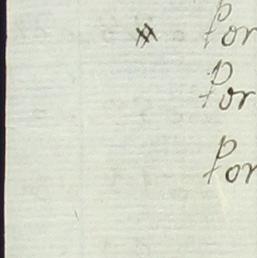 # Por
Por
Por